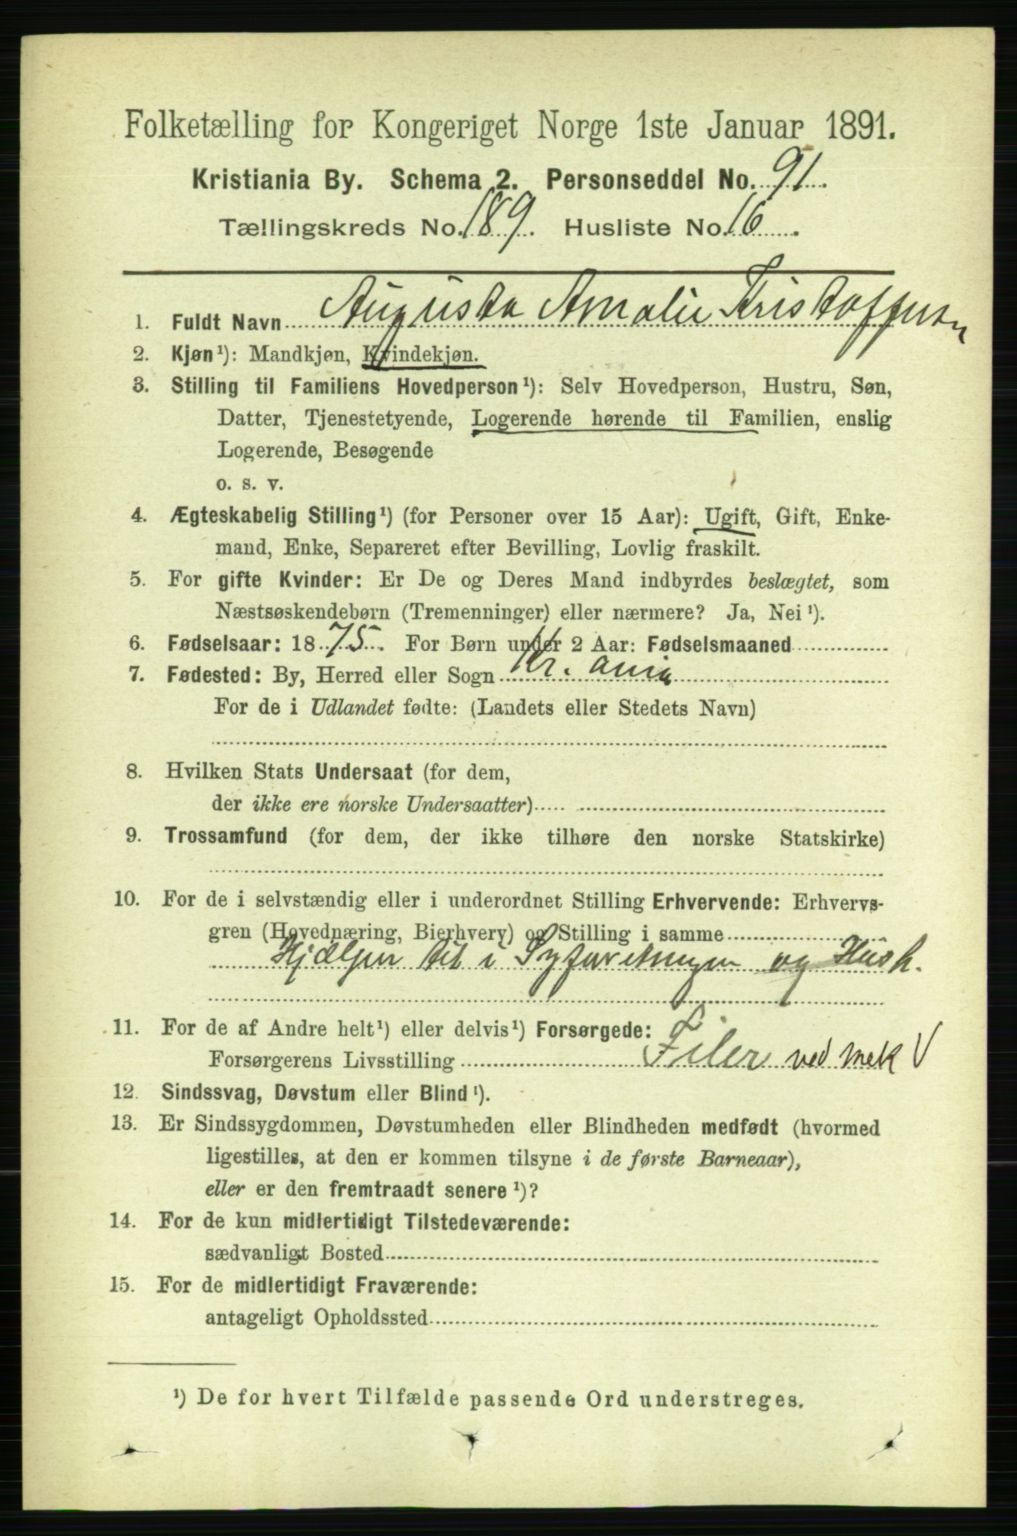 Folketælling for Kongeriget Norge 1ste Januar 1891.
Kristiania By. Schema 2. Personseddel No. 91.
Tællingskreds No. 189. Husliste No. 16.
1. Fuldt Navn Augusta Amalie Kristoffersen
2. Kjøn¹): Mandkjøn, Kvindekjøn.
3. Stilling til Familiens Hovedperson¹): Selv Hovedperson, Hustru, Søn,
Datter, Tjenestetyende, Logerende hørende til Familien, enslig
Logerende, Besøgende
o. s. v.
4. Ægteskabelig Stilling¹) (for Personer over 15 Aar): Ugift, Gift, Enke-
mand, Enke, Separeret efter Bevilling, Lovlig fraskilt.
5. For gifte Kvinder: Er De og Deres Mand indbyrdes beslægtet, som
Næstsøskendebørn (Tremenninger) eller nærmere? Ja, Nei¹).
6. Fødselsaar: 1875. For Børn under 2 Aar: Fødselsmaaned
7. Fødested: By, Herred eller Sogn Kr. ania
For de i Udlandet fødte: (Landets eller Stedets Navn)
8. Hvilken Stats Undersaat (for dem,
der ikke ere norske Undersaatter)
9. Trossamfund (for dem, der ikke tilhøre den norske Statskirke)
10. For de i selvstændig eller i underordnet Stilling Erhvervende: Erhvervs-
gren (Hovednæring, Bierhverv) og Stilling i samme
Hjælper til i Syforretningen og Hush.
11. For de af Andre helt¹) eller delvis¹) Forsørgede:
Forsørgerens Livsstilling Filer ved mek V
12. Sindssvag, Døvstum eller Blind¹).
13. Er Sindssygdommen, Døvstumheden eller Blindheden medfødt (hvormed
ligestilles, at den er kommen tilsyne i de første Barneaar),
eller er den fremtraadt senere¹)?
14. For de kun midlertidigt Tilstedeværende:
sædvanligt Bosted
15. For de midlertidigt Fraværende:
antageligt Opholdssted
¹) De for hvert Tilfælde passende Ord understreges.